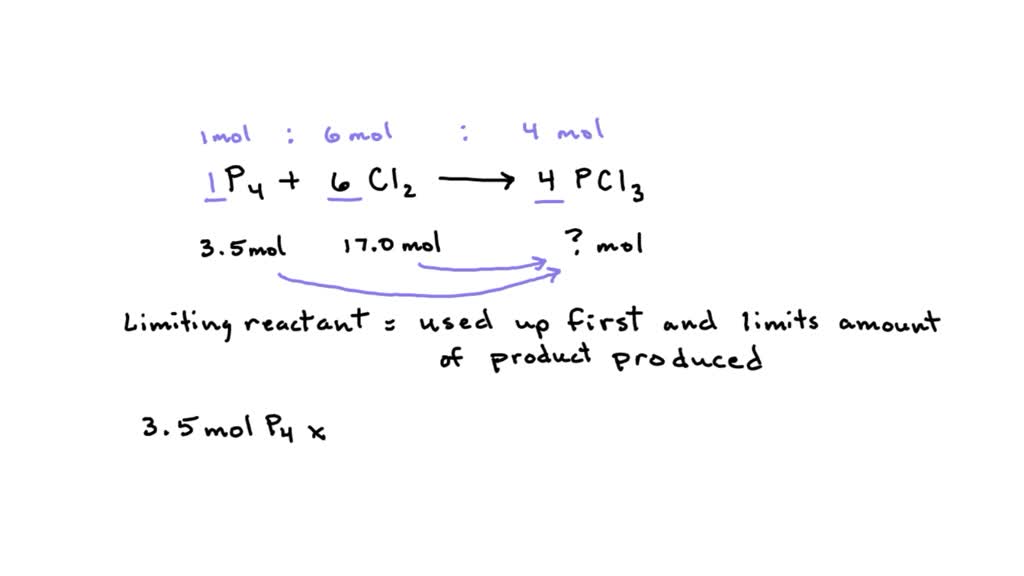 1mol : 6 mol : 4 mol
1 P4 + 6 Cl2 → 4 PCl3
3.5mol 17.0 mol ? mol
Limiting reactant = used up first and limits amount
of product produced
3.5 mol P4 x